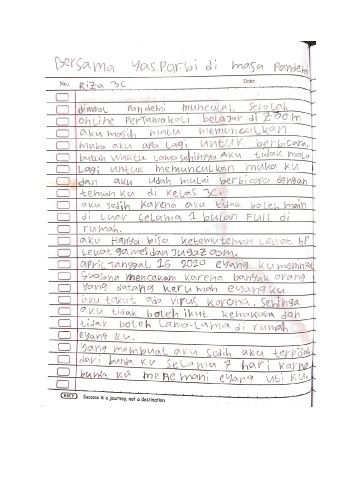 Bersama Yasporbi di masa Pandemi
No.: Riza 3C Date:
diawal Pandemi munculah Sekolah
online Pertama kali belajar di Zoom
aku masih malu memunculkan
muka aku apa lagi untuk berbicara.
butuh waktu lama sehingga Aku tidak malu
Lagi untuk memunculkan muka ku
dan aku udah mulai berbicara dengan
teman ku di kelas 3c.
aku sedih karena aku tidak boleh main
di Luar Selama 1 bulan Full di
rumah.
aku Hanya bisa ketemu teman Lewat HP
Lewat game dan Juga Zoom.
April Tanggal 15 2020 eyang ku
Suasana mencekam karena banyak orang
yang datang kerumah eyang ku
aku takut ada virus korona. Sehinga
aku tidak boleh ikut kemakam dan
tidak boleh Lama-Lama di rumah
eyang ku.
yang membuat aku sedih aku terpisah
dari bunda ku Selama 7 hari karna
bunda ku menemani eyang uti ku.
KIKY Success is a journey, not a destination